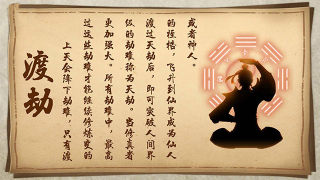 渡劫
上天会降下劫难，只有渡
过这些劫难才能继续修炼变的
更加强大。所有劫难中，最高
级的劫难称为天劫。当修真者
渡过天劫后，即可突破人间界
的桎梏，飞升到仙界成为仙人
或者神人。